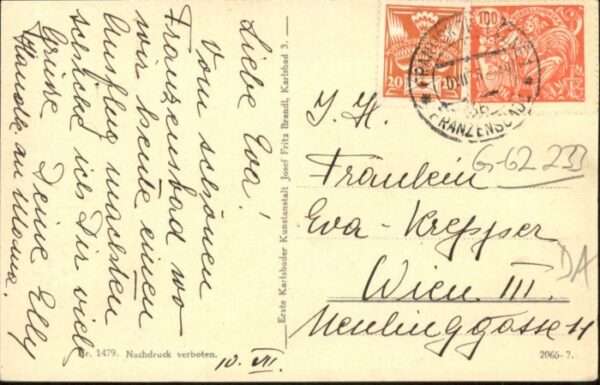 Liebe Eva!
Vom schönen
Franzensbad wo
wir heute einen
Ausflug machten
schicke ich Dir viele
Grüße Deine Elly
Handk. an Mama.
10. VII.
Erste Karlsbader Kunstanstalt Josef Fritz Brandl, Karlsbad 3.
Nr. 1479. Nachdruck verboten.
20
100
FRANZENSBAD
Fräulein
Eva Krepper
Wien III.
Neulinggasse 11
G-62 233
DA
2065-7.